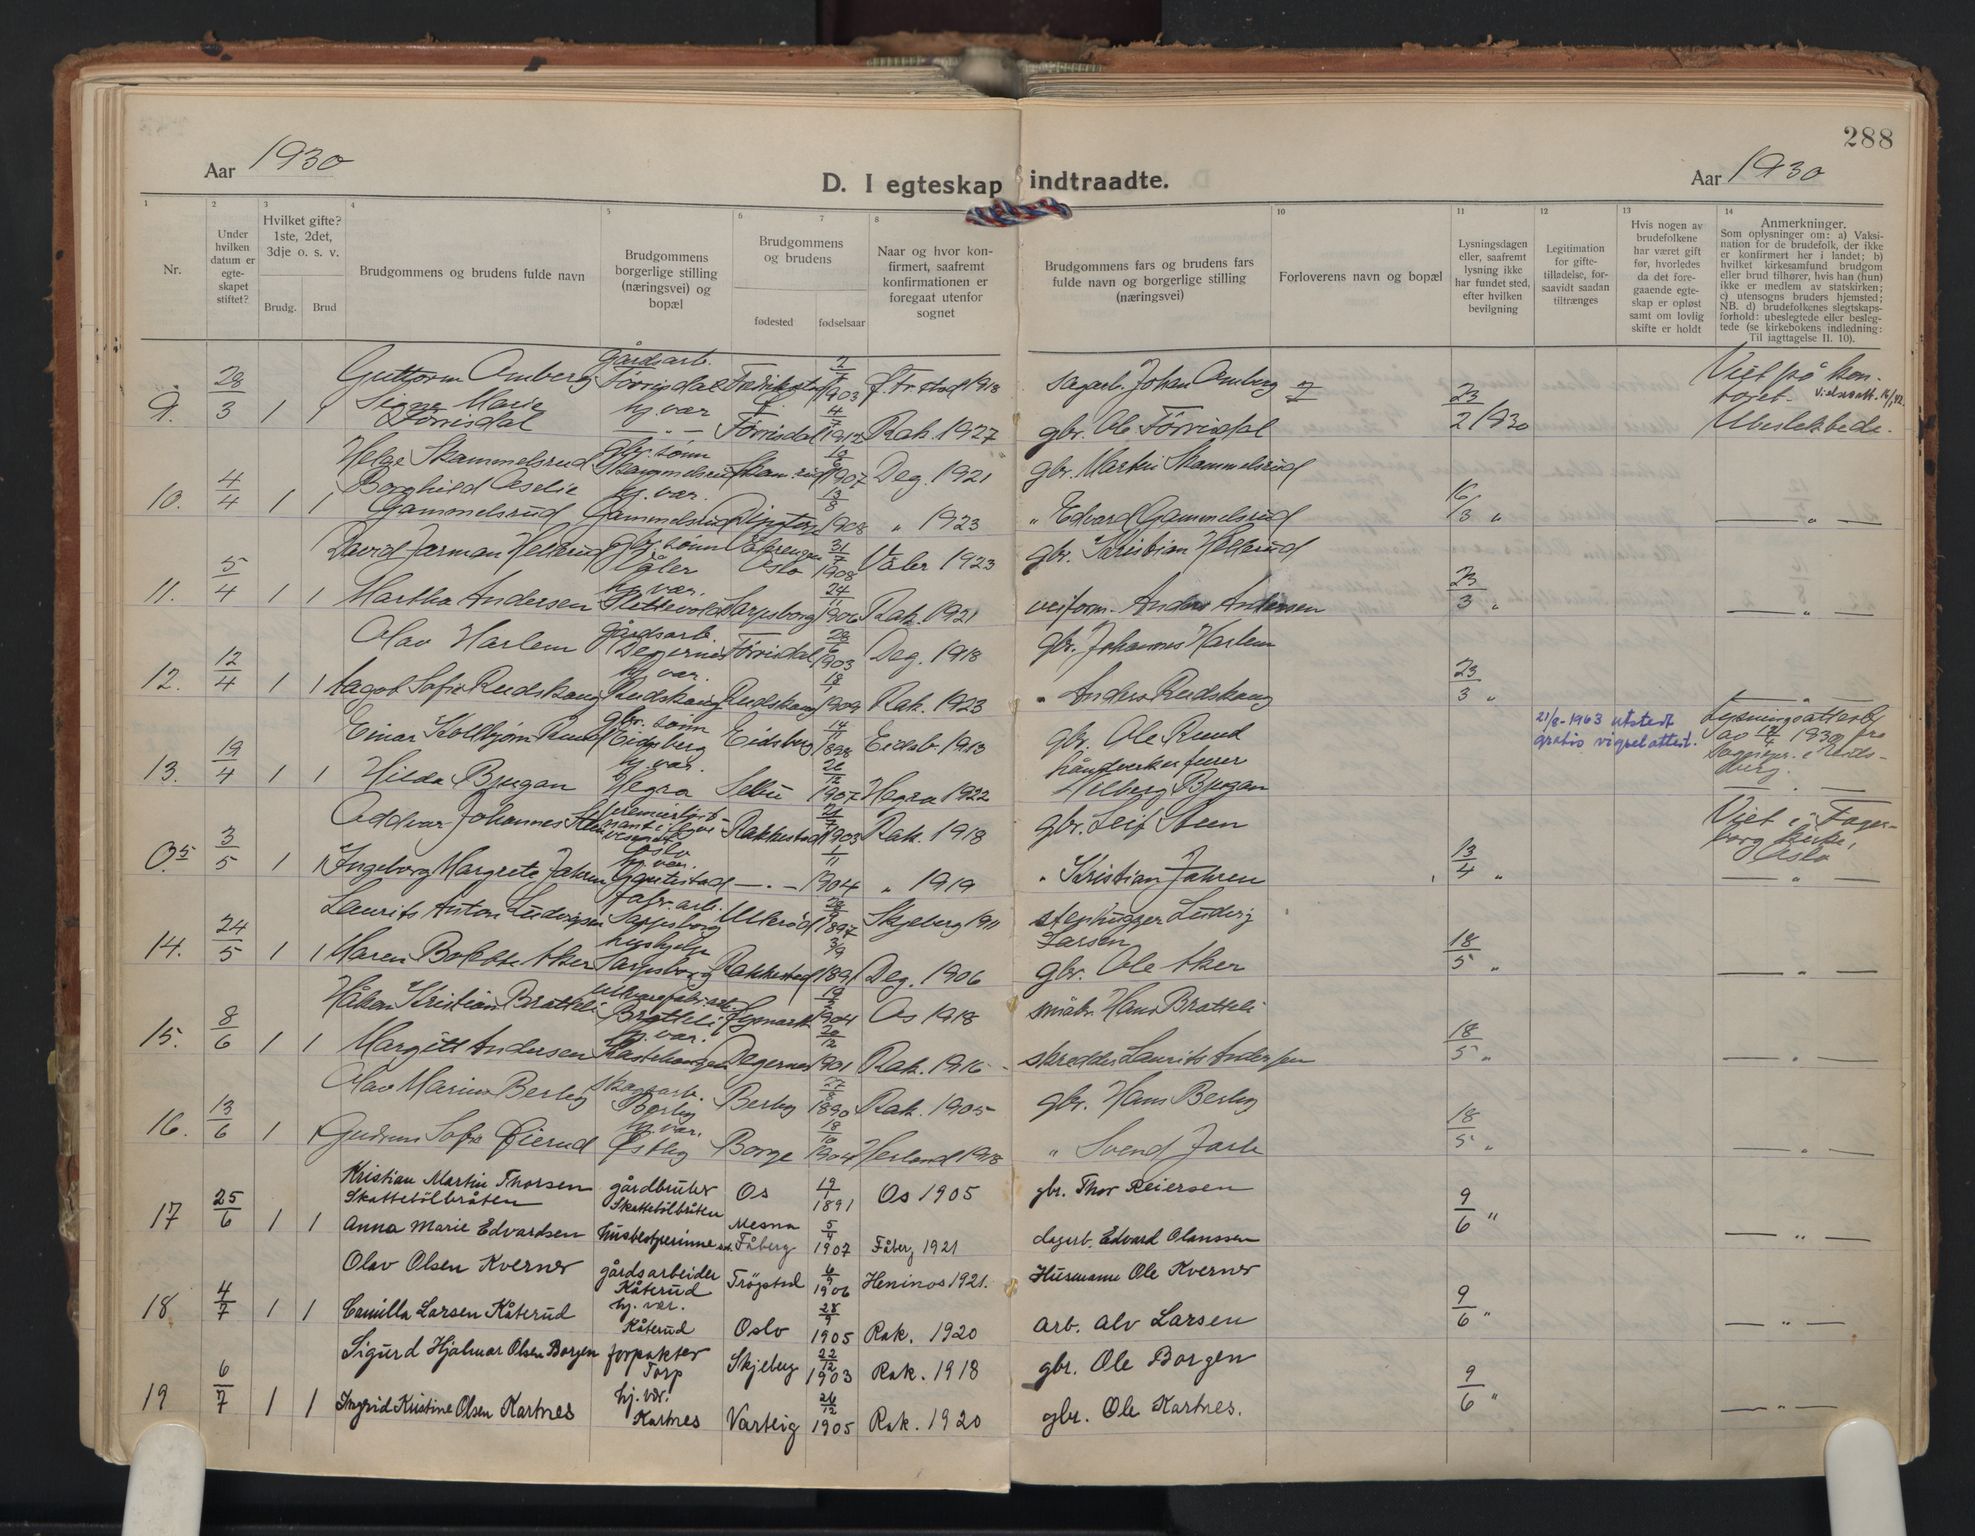 288
Aar 1930
D. I egteskap indtraadte.
Aar 1930
1 2 3 4 5 6 7 8 10 11 12 13 14
Nr.
Under hvilken datum er egteskapet stiftet?
Hvilket gifte? 1ste, 2det, 3dje o. s. v.
Brudg. Brud
Brudgommens og brudens fulde navn
Brudgommens borgerlige stilling (næringsvei) og bopæl
Brudgommens og brudens
fødested fødselsaar
Naar og hvor konfirmert, saafremt konfirmationen er foregaat utenfor sognet
Brudgommens fars og brudens fars fulde navn og borgerlige stilling (næringsvei)
Forloverens navn og bopæl
Lysningsdagen eller, saafremt lysning ikke har fundet sted, efter hvilken bevilgning
Legitimation for giftetilladelse, forsaavidt saadan tiltrænges
Hvis nogen av brudefolkene har været gift før, hvorledes da det foregaaende egteskap er opløst samt om lovlig skifte er holdt
Anmerkninger.
Som oplysninger om: a) Vaksination for de brudefolk, der ikke er konfirmert her i landet; b) hvilket kirkesamfund brudgom eller brud tilhører, hvis han (hun) ikke er medlem av statskirken; c) utensogns bruders hjemsted; NB. d) brudefolkenes slegtskapsforhold: ubeslegtede eller beslegtede (se kirkebokens indledning: Til jagttagelse II. 10).
Guttorm Omberg Gårdsarb. Tørrisdal Fredrikstad 2/7 1903 Fr.stad 1918 sagarb. Johan Omberg
9. 28/3 1 1 Signe Marie Tørrisdal hj. vær. Tørrisdal 4/7 1912 Rak. 1927 gbr. Ole Tørrisdal 23/2 1930 Viet på kontoret. Ubeslektede.
Helge Skammelsrud gbr. sønn Skammelsrud 1907 Deg. 1921 gbr. Martin Skammelsrud
10. 4/4 1 1 Borghild Aselie Gammelsrud hj. vær. Gammelsrud 13/8 1908 " 1923 " Edvard Gammelsrud 16/3 "
David Jarman Hellerud gbr. sønn Våler Oslo 31/7 1908 Våler 1923 gbr. Kristian Hellerud
11. 5/4 1 1 Martha Andersen hj. vær. Slettevold Sarpsborg 24/11 1906 Rak. 1921 veiform. Anders Andersen 23/3 "
Olav Harlem gårdsarb. Degernes Tørrisdal 28/6 1903 Deg. 1918 gbr. Johannes Harlem
12. 12/4 1 1 Aagot Sofie Rudskaug hj. vær. Rudskaug Rudskaug 18/1 1909 Rak. 1923 " Anders Rudskaug 23/3 "
Einar Kolbjørn Ruud gbr. sønn Eidsberg Eidsberg 14/11 1898 Eidsb. 1913 gbr. Ole Ruud 21/8-1963 utstedt gratis vigselattest. Lysningsattest av 12/4 1930 fra Sognepr. i Eidsberg.
13. 19/4 1 1 Hilda Bjugan hj. vær. Hegra Selbu 26/12 1907 Hegra 1922 håndverker Bjugan
Oddvar Johannes Steen premierløitnant Oslo Rakkestad 1903 Rak. 1918 gbr. Leif Steen Viet i Fagerborg kirke, Oslo
0.5 3/5 1 1 Ingeborg Margrete Jahren hj. vær. Gautestad —"— 1904 " 1919 " Kristian Jahren 13/4 "
Laurits Anton Ludvigsen fabr. arb. Sarpsborg Ullerød 1897 Skjeberg 1911 stenhugger Ludvig Larsen
14. 24/5 1 1 Maren Bolette Aker hushjelp Sarpsborg Rakkestad 3/9 1891 Deg. 1906 gbr. Ole Aker 18/5 "
Håkon Kristian Bratteli Bratteli Rømark 1904 Os 1918 småbr. Hans Bratteli
15. 8/6 1 1 Margitt Andersen hj. vær. Degernes 20/12 1901 Rak. 1916 skredder Laurits Andersen 18/5 "
Olav Marius Berby skogsarb. Berby Berby 27/8 1890 Rak. 1905 gbr. Hans Berby
16. 13/6 1 1 Gudrun Sofie Øierud hj. vær. Østby Borge 18/10 1904 Herland 1918 " Svend 18/5 "
Kristian Martin Thorsen Skattetølbråten gårdbruker Skattetølbråten Os 19/1 1891 Os 1905 gbr. Thor Reiersen
17 25/6 1 1 Anna Marie Edvardsen husbestyrerinne sst. Mesna Fåberg 5/4 1907 Fåberg 1921 dagarb. Edvard Olaussen 9/6 "
Olav Olsen Kverner gårdsarbeider Kåterud Trøgstad 6/9 1906 Heninos 1921. Husmann Ole Kverner
18 4/7 1 1 Camilla Larsen Kåterud hj. vær. Kåterud Oslo 28/9 1905 Rak. 1920 arb. Alv Larsen 9/6 "
Sigurd Hjalmar Olsen Borgen forpakter Torp Skjeberg 22/12 1903 Rak. 1918 gbr. Ole Borgen
19 6/7 1 1 Ingrid Kristine Olsen Kartnes hj. vær. Kartnes Varteig 26/12 1905 Rak. 1920 gbr. Ole Kartnes. 9/6 "